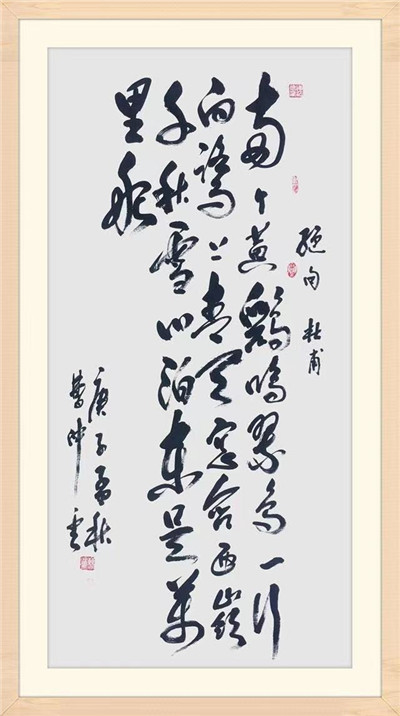 绝句 杜甫
两个黄鸝鸣翠柳一行
白鹭上青天窗含西嶺
千秋雪门泊东吴萬
里船
庚子孟秋